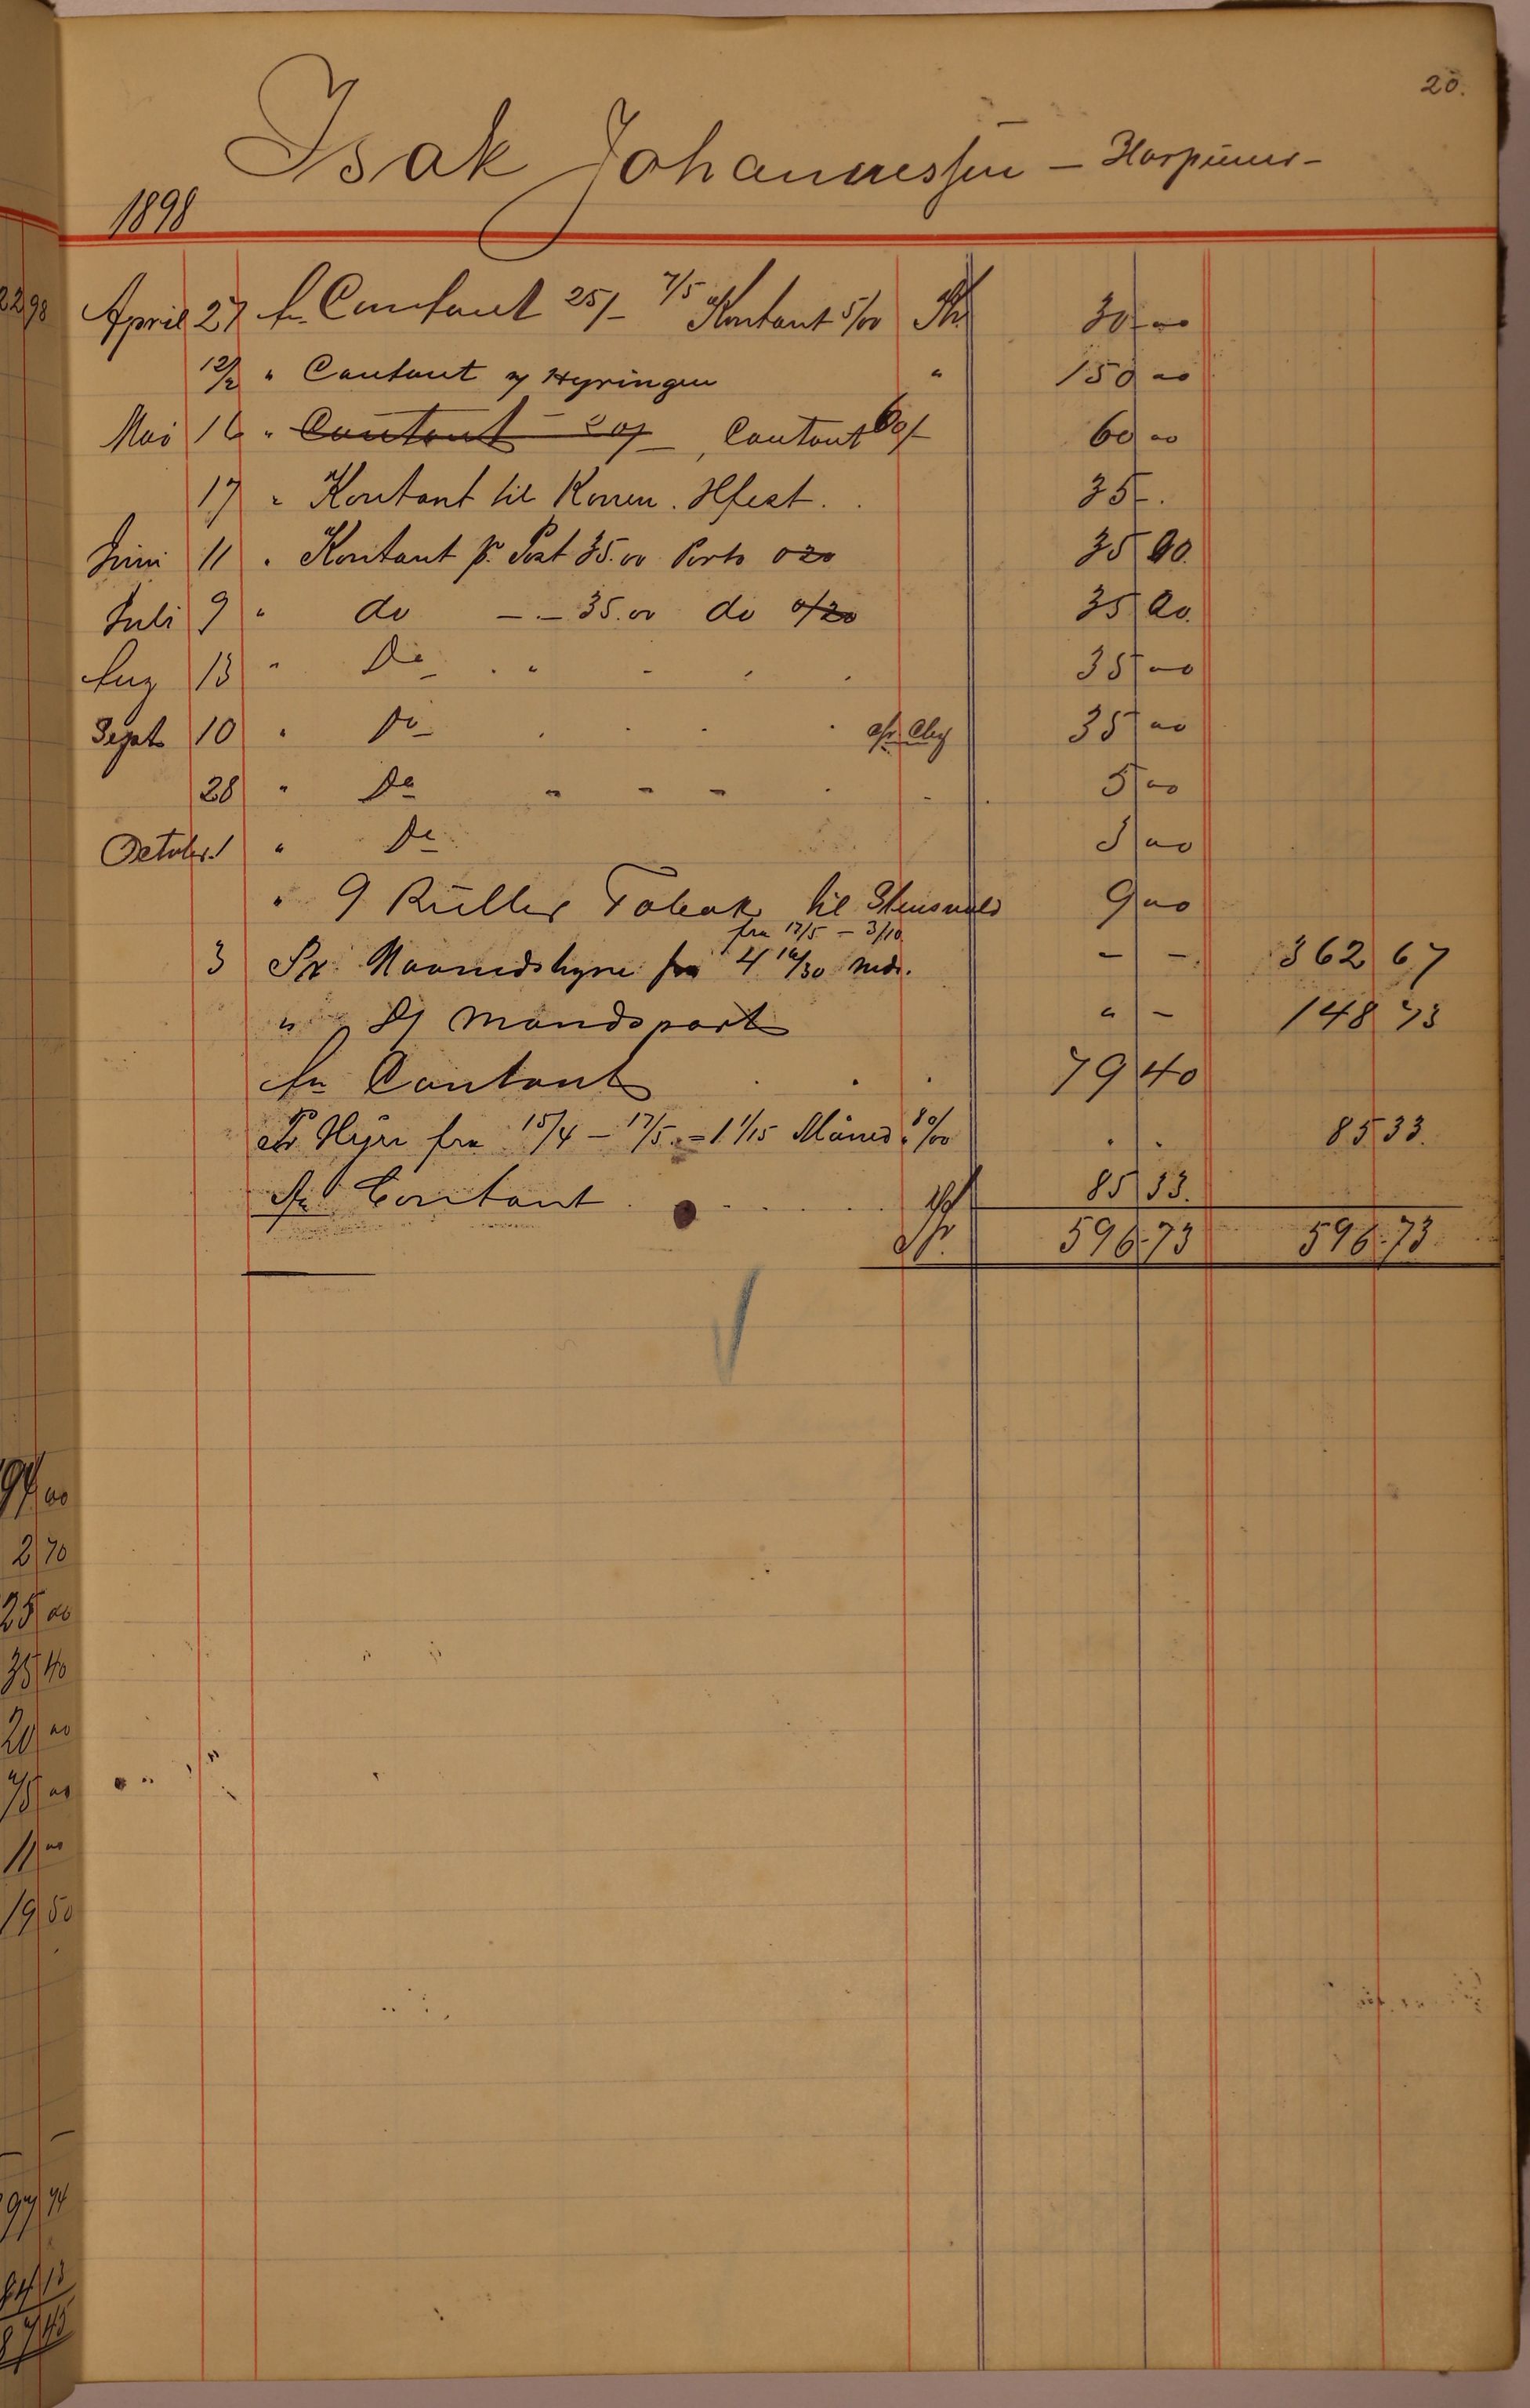 20.
Isak Johannessen – Harpuner –
1898
April 27 An Contant 25/- 7/5 Kontant 5/00 Kr 30 00
12/2 " Contant af Hyringen " 150 00
Mai 16 " Contant – 20/- , Contant 60/- 60 00
17 " Kontant til Konen . 35 - .
Juni 11 " Kontant pr. Post 35.00 Porto 020 35 00.
Juli 9 " do – . – 35.00 do 0/20 35 00.
Aug 13 " Do . " - 35 00
Sept. 10 " Do 35 00
28 " Do " - - 5 00
Octobr. 1 " Do 5 00
" 9 Ruller Tobak til 9 00
fra 17/5 – 3/10
3 Pr. Maanedshyre fra 4 16/30 Mdr. – – 362 67
" Mandspart " – 148 73
An Contant . . . 79 40
Pr Hyre fra 15/4 – 17/5. = 1 1/15 Måned. 80/00 . . 85 33.
An Contant . . . . . . . 85 33.
Kr. 596.73 596.73
22 98
97 00
2 70
25 00
35 40
20 00
75 00
11 00
19 50